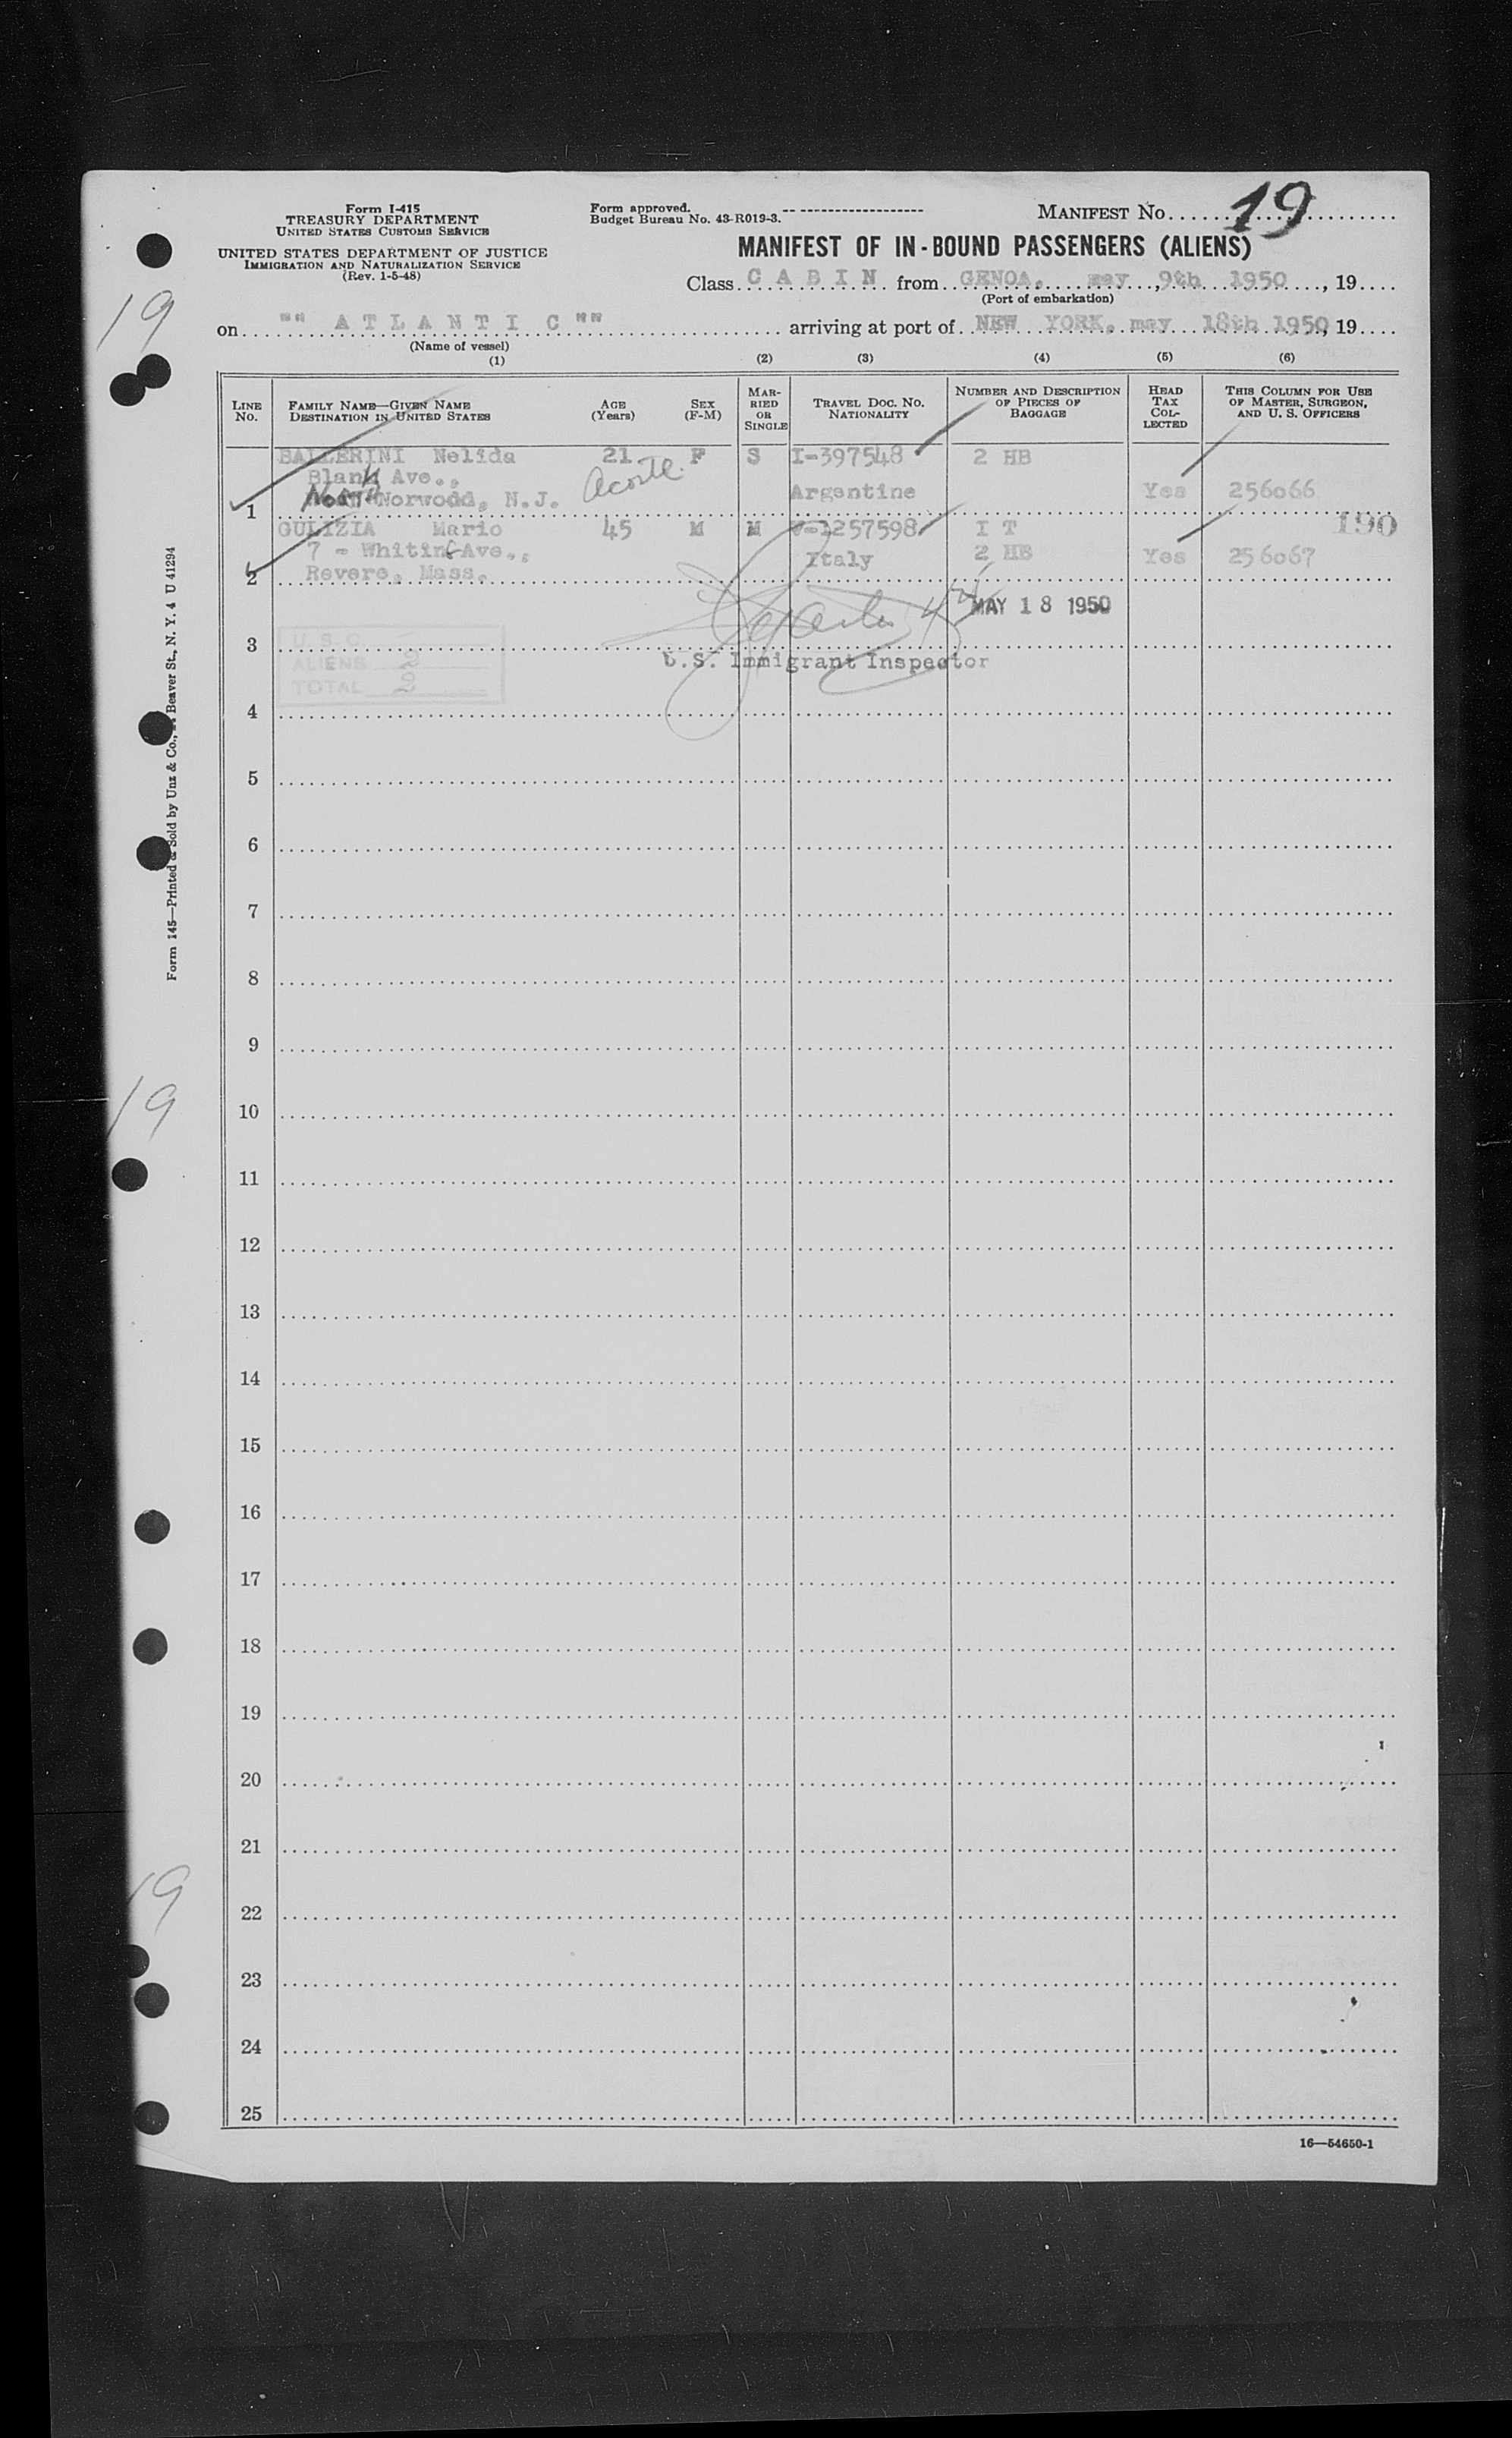 Form I-415
TREASURY DEPARTMENT
UNITED STATES CUSTOMS SERVICE
UNITED STATES DEPARTMENT OF JUSTICE
IMMIGRATION AND NATURALIZATION SERVICE
(Rev. 1-5-48)
Form approved.
Budget Bureau No. 43-R019-3.
MANIFEST NO. 19
MANIFEST OF IN-BOUND PASSENGERS (ALIENS)
Class C A B I N from GENOA, may 9th 1950, 19....
(Port of embarkation)
19
on "" A T L A N T I C "" arriving at port of NEW YORK, may 18th 1950, 19....
(Name of vessel)
(1) (2) (3) (4) (5) (6)
LINE NO. FAMILY NAME—GIVEN NAME DESTINATION IN UNITED STATES AGE (Years) SEX (F-M) MARRIED OR SINGLE TRAVEL DOC. NO. NATIONALITY NUMBER AND DESCRIPTION OF PIECES OF BAGGAGE HEAD TAX COLLECTED THIS COLUMN FOR USE OF MASTER, SURGEON, AND U. S. OFFICERS
BALLERINI Nelida 21 F S I-397548 2 HB
Ave.,
1 North Norwood, N.J. Argentine Yes 256066
GULIZIA Mario 45 M M 1257598 I T 190
7 - Whiting Ave., Italy 2 HB Yes 256067
2 Revere, Mass.
MAY 18 1950
3
U.S.C. —
ALIENS 2
TOTAL 2
U.S. Immigrant Inspector
4
5
6
7
8
9
10
19
11
12
13
14
15
16
17
18
19
20
21
22
19
23
24
25
16—54650-1
Form 145—Printed & Sold by Unz & Co., Beaver St., N. Y. 4 U 41294